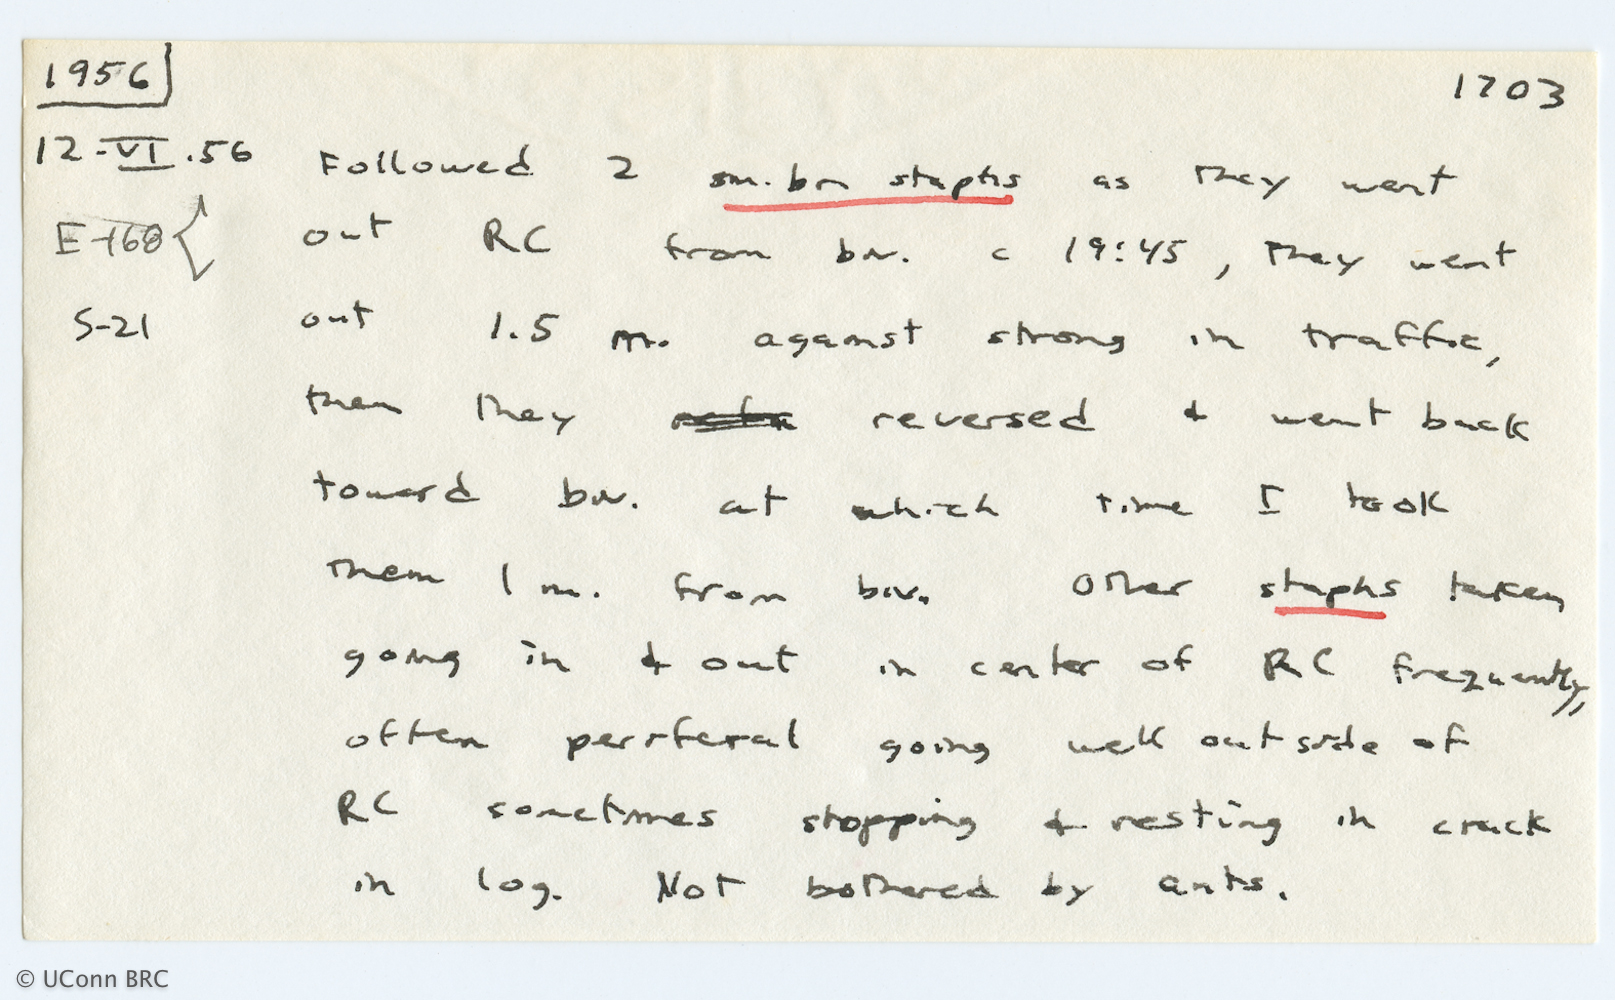 1956
1703
12-VI.56 Followed 2 sm. brn staphs as they went
E-168 out RC from biv. c 19:45, they went
S-21 out 1.5 m. against strong in traffic,
then they reversed & went back
toward biv. at which time I took
them 1 m. from biv. Other staphs taken
going in & out in center of RC frequently,
often periferal going well outside of
RC sometimes stopping & resting in crack
in log. Not bothered by ants.
© UConn BRC